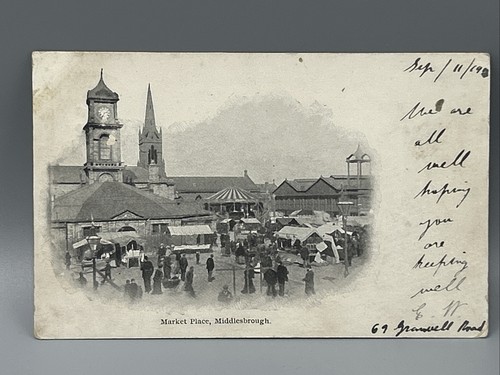 Sep/11/
We are
all
well
hoping
you
are
keeping
well
E. W.
69 Road
Market Place, Middlesbrough.